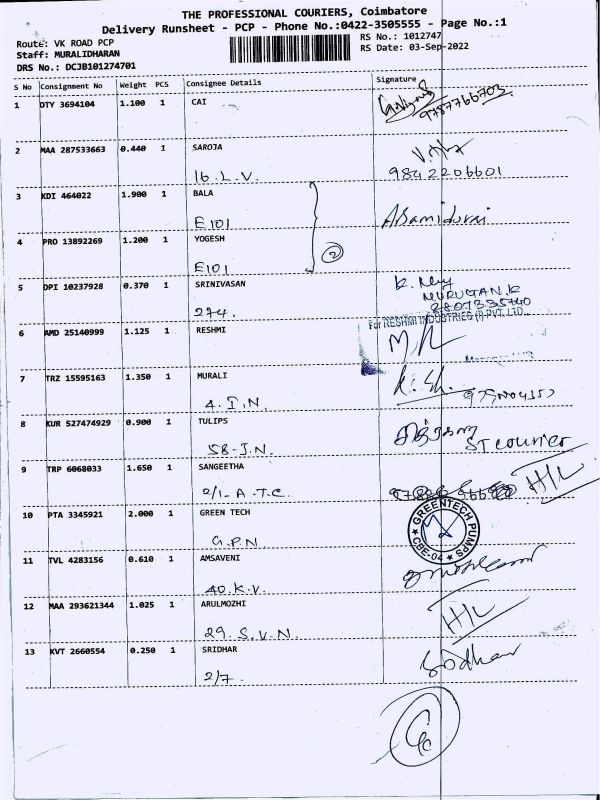 THE PROFESSIONAL COURIERS, Coimbatore
Delivery Runsheet - PCP - Phone No.:0422-3505555 - Page No.:1
Route: VK ROAD PCP
Staff: MURALIDHARAN
DRS No.: DCJB101274701
RS No.: 1012747
RS Date: 03-Sep-2022
S No Consignment No Weight PCS Consignee Details Signature
1 DTY 3694104 1.100 1 CAI
9787766703
2 MAA 287533663 0.440 1 SAROJA
16. L.V. 9842206601
3 KDI 464022 1.900 1 BALA
E101
4 PRO 13892269 1.200 1 YOGESH
E101 2
5 DPI 10237928 0.370 1 SRINIVASAN
274. MURUGAN.K
For RESHMI INDUSTRIES (I) PVT. LTD.
6 AMD 25140999 1.125 1 RESHMI
7 TRZ 15595163 1.350 1 MURALI
4. I.N.
8 KUR 527474929 0.900 1 TULIPS
58-J.N. ST courier
9 TRP 6068033 1.650 1 SANGEETHA
2/1-A.T.C. H/L
10 PTA 3345921 2.000 1 GREEN TECH
G.P.N GREENTECH PUMPS CBE-04
11 TVL 4283156 0.610 1 AMSAVENI
40.K.V.
12 MAA 293621344 1.025 1 ARULMOZHI
29. S.V.N. H/L
13 KVT 2660554 0.250 1 SRIDHAR
2/7. Sridhar